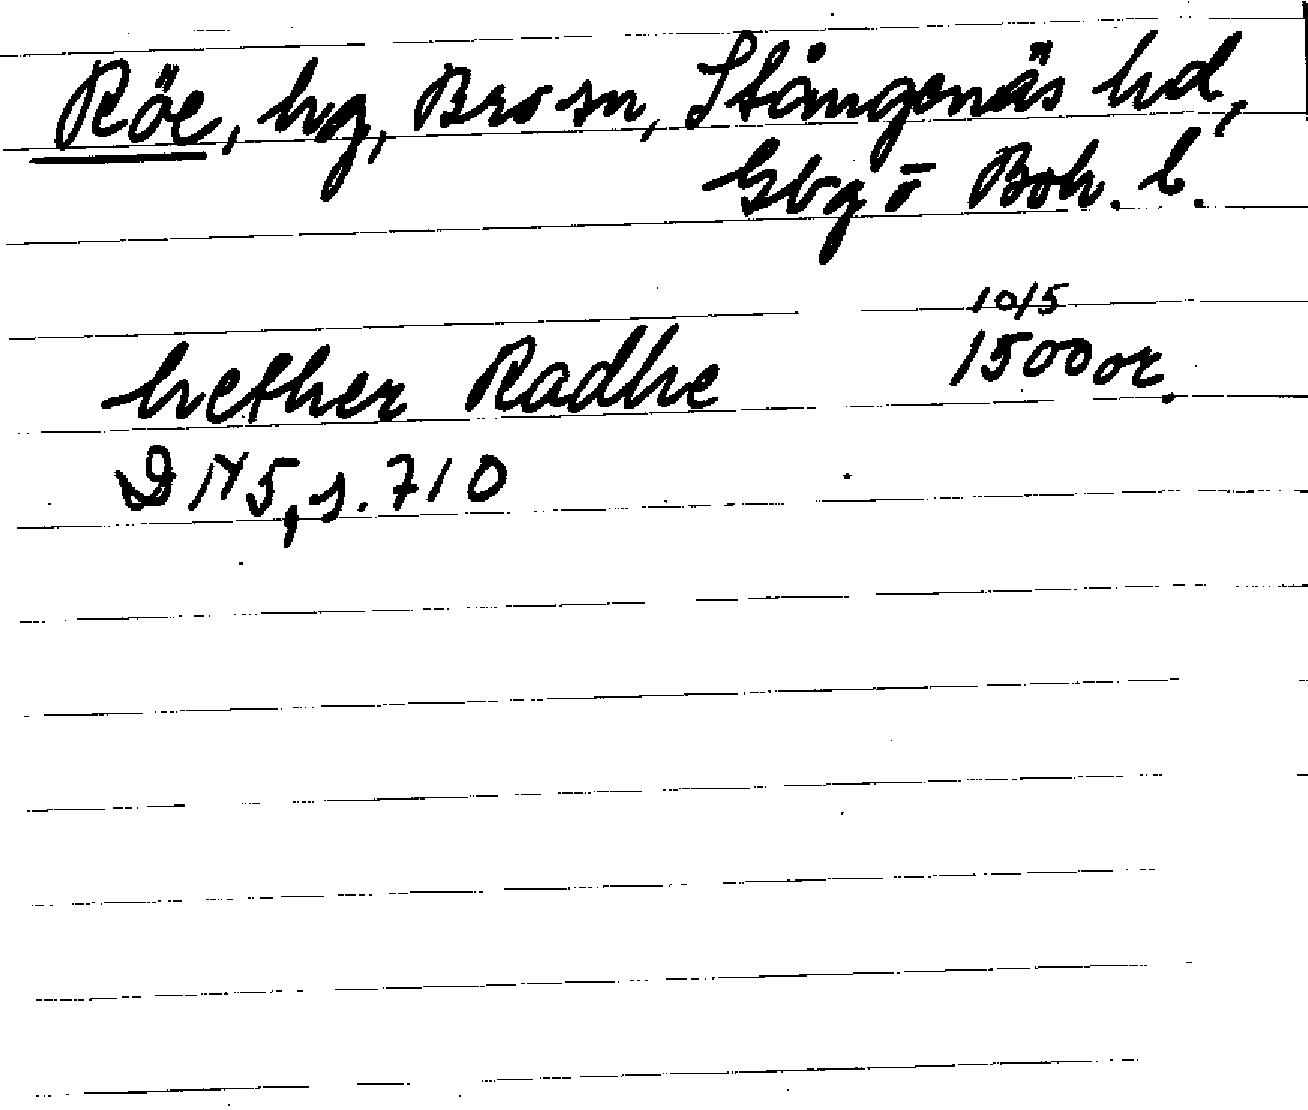 Röe, hg, Bro sn, Stångenäs hd,
Gbg o Boh. l.
10/5
hether Radhe 1500 or.
DN 5, s. 710